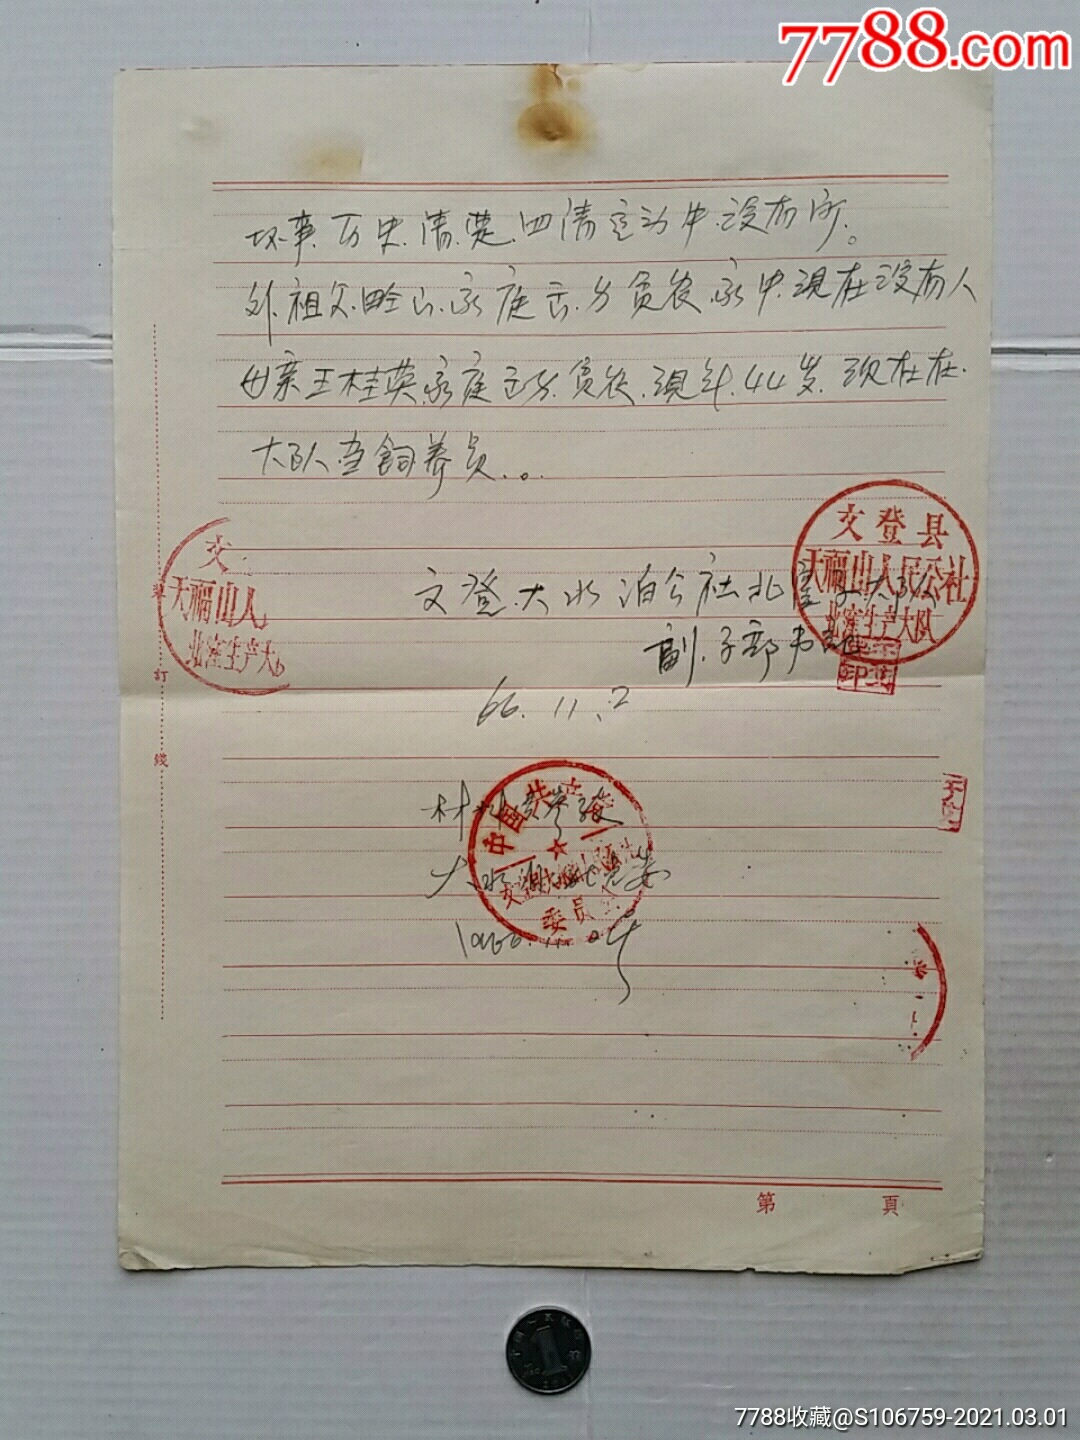 7788.com
坏事.历史.清楚.四清运动中.没有问.。
外祖父.家庭.分贫农.家中.現在没有人
母亲王桂英.家庭.贫农.現年.44岁.现在在.
大队当飼养员..。
文登县
天福山人民公社
北窪生产大队
文
天福山人
北窪生产大
文登.大水泊公社北窪子大队
副.支部书記
66.11.2
装訂綫
材料
中国共产党
大水泊公社党委
委员会
第 頁
7788收藏@S106759-2021.03.01